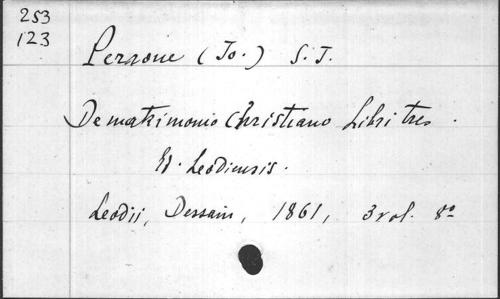 253
123
Perrone (Jo.) S. J.
De matrimonio Christiano Libri tres.
Ed. Leodiensis.
Leodii, Dessain, 1861, 3 vol. 8º